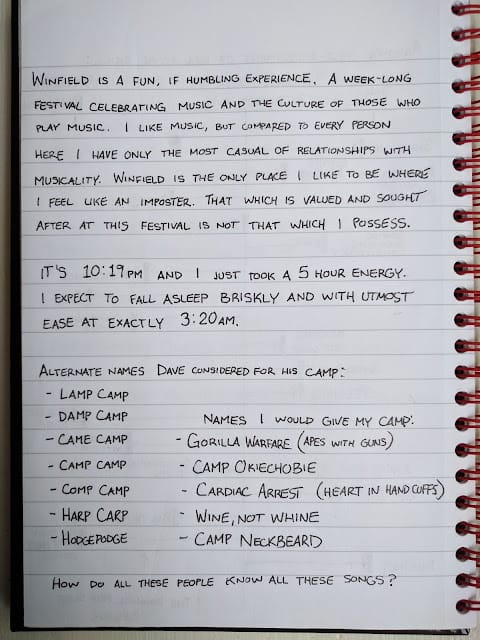 WINFIELD IS A FUN, IF HUMBLING EXPERIENCE. A WEEK-LONG
FESTIVAL CELEBRATING MUSIC AND THE CULTURE OF THOSE WHO
PLAY MUSIC. I LIKE MUSIC, BUT COMPARED TO EVERY PERSON
HERE I HAVE ONLY THE MOST CASUAL OF RELATIONSHIPS WITH
MUSICALITY. WINFIELD IS THE ONLY PLACE I LIKE TO BE WHERE
I FEEL LIKE AN IMPOSTER. THAT WHICH IS VALUED AND SOUGHT
AFTER AT THIS FESTIVAL IS NOT THAT WHICH I POSSESS.
IT'S 10:19PM AND I JUST TOOK A 5 HOUR ENERGY.
I EXPECT TO FALL ASLEEP BRISKLY AND WITH UTMOST
EASE AT EXACTLY 3:20AM.
ALTERNATE NAMES DAVE CONSIDERED FOR HIS CAMP:
- LAMP CAMP
- DAMP CAMP
- CAME CAMP
- CAMP CAMP
- COMP CAMP
- HARP CARP
- HODGEPODGE
NAMES I WOULD GIVE MY CAMP:
- GORILLA WARFARE (APES WITH GUNS)
- CAMP OKIECHOBIE
- CARDIAC ARREST (HEART IN HANDCUFFS)
- WINE, NOT WHINE
- CAMP NECKBEARD
HOW DO ALL THESE PEOPLE KNOW ALL THESE SONGS?